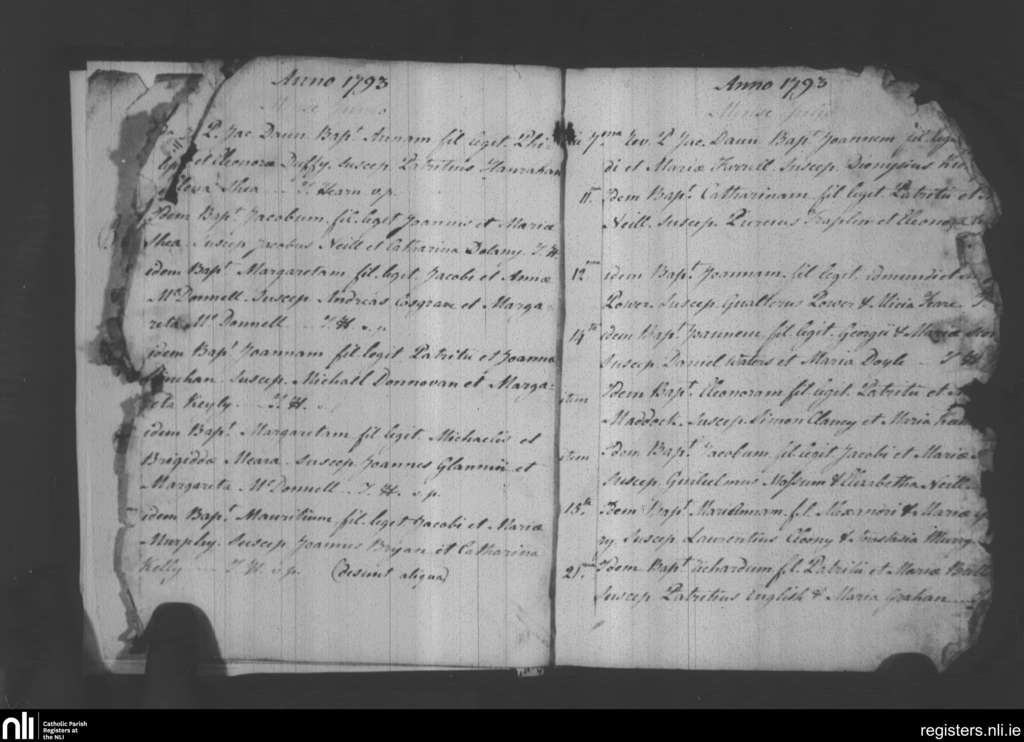 Anno 1793
Mense Junio
P. Jac. Daun Bapt. Annam fil. legit. Phi-
et Eleonora Duffy. Suscep. Patritius Hanrahan
Shea T. Hearn v.p.
Idem Bapt. Jacobum fil. legit Joannis et Maria
Shea. Suscep. Jacobus Neill et Catharina Delany. T. H.
idem Bapt. Margaretam fil. legit. Jacobi et Annæ
McDonnell. Suscep. Andreas Cosgrave et Marga-
reta McDonnell T. H. v.p.
idem Bapt. Joannam fil. legit Patritii et Joanna
Suscep. Michael Donnovan et Marga-
eta T. H.
idem Bapt. Margaretam fil. legit. Michaelis et
Brigidda Meara. Suscep. Joannes et
Margareta McDonnell T. H. v.p.
idem Bapt. Mauritium fil. legit Jacobi et Mariæ
Murphy. Suscep Joannus Bryan et Catharina
Kelly T. H. v.p. (desunt aliqua)
Anno 1793
Mense
7ma Rev. P. Jac. Daun Bapt. Joannem fil. legit
di et Mariæ Farrell. Suscep. Dionysius
11. Idem Bapt. Catharinam fil legit. Patritii et
Neill. Suscep. et Eleonora
12mo idem Bapt. Joannam fil legit. Edmundi et
Power. Suscep. Gualterus Power & Alicia
14to idem Bapt. Joannem fil. legit. Georgii & Mariæ
Suscep. Daniel Waters et Maria Doyle T. H.
item Idem Bapt. Eleonoram fil. legit. Patritii et
Maddock. Suscep. Simon Clancy et Maria
item Idem Bapt. Jacobum fil. legit Jacobi et Mariæ
Suscep. Gulielmus & Elizabetha Neill
15to Idem Bapt. fil. & Mariæ
ry. Suscep. Laurentius & Anastasia Murry
21mo Idem Bapt. Richardum fil. Patritii et Mariæ
Suscep. Patritius English & Maria
nli
Catholic Parish
Registers at
the NLI
registers.nli.ie